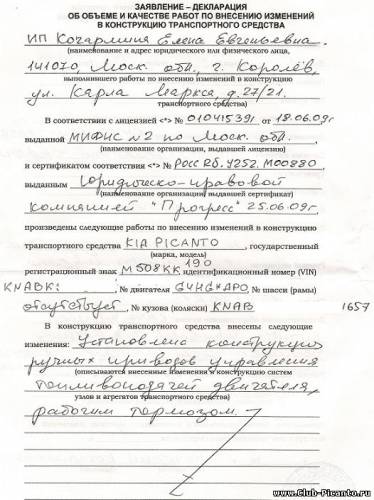 ЗАЯВЛЕНИЕ – ДЕКЛАРАЦИЯ
ОБ ОБЪЕМЕ И КАЧЕСТВЕ РАБОТ ПО ВНЕСЕНИЮ ИЗМЕНЕНИЙ
В КОНСТРУКЦИЮ ТРАНСПОРТНОГО СРЕДСТВА
ИП Кочармина Елена Евгеньевна.
(наименование и адрес юридического или физического лица,
141070, Моск. обл, г. Королёв,
выполнившего работы по внесению изменений в конструкцию
ул. Карла Маркса, д.27/21.
транспортного средства)
В соответствии с лицензией <*> № 010415391 от 18.06.09г.
выданной МИФНС №2 по Моск. обл.
(наименование организации, выдавшей лицензию)
и сертификатом соответствия <*> № РОСС RБ.У252.М00880
выданным Юридическо-правовой
(наименование организации, выдавшей сертификат)
компанией "Прогресс" 25.06.09г.,
произведены следующие работы по внесению изменений в конструкцию
транспортного средства KIA PICANTO, государственный
(марка, модель)
регистрационный знак М508КК 190, идентификационный номер (VIN)
KNABK: , № двигателя G4HG, № шасси (рамы)
отсутствует, № кузова (коляски) KNAB 1657
В конструкцию транспортного средства внесены следующие
изменения: Установлена конструкция
ручных приводов управления
(описываются внесенные изменения в конструкцию систем
топливоподачей двигателя,
узлов и агрегатов транспортного средства)
рабочим тормозом.
www.Club-Picanto.ru